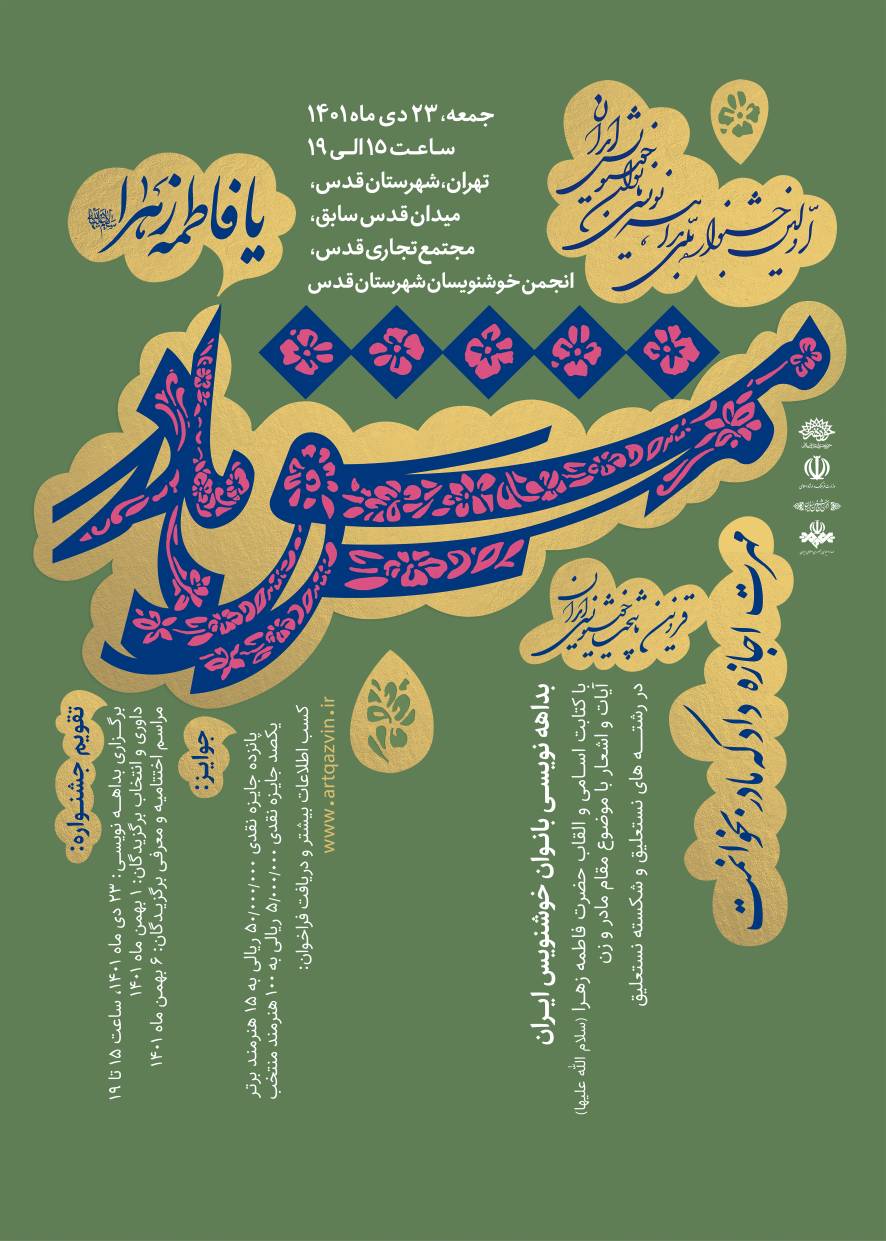 اولین جشنواره ملی
هنرنویسی بانوان
خوشنویس ایران
جمعه، ۲۳ دی ماه ۱۴۰۱
ساعت ۱۵ الی ۱۹
تهران، شهرستان قدس،
میدان قدس سابق،
مجتمع تجاری قدس،
انجمن خوشنویسان شهرستان قدس
یا فاطمه زهرا
مشق مادر
بداهه نویسی بانوان خوشنویس ایران
با کتابت اسامی و القاب حضرت فاطمه زهرا (سلام الله علیها)
آیات و اشعار با موضوع مقام مادر و زن
در رشته های نستعلیق و شکسته نستعلیق
اجازه داد که مادر بخوانمت
تقویم جشنواره:
برگزاری بداهه نویسی: ۲۳ دی ماه ۱۴۰۱، ساعت ۱۵ تا ۱۹
داوری و انتخاب برگزیدگان: ۱ بهمن ماه ۱۴۰۱
مراسم اختتامیه و معرفی برگزیدگان: ۶ بهمن ماه ۱۴۰۱
جوایز:
پانزده جایزه نقدی ۵۰/۰۰۰/۰۰۰ ریالی به ۱۵ هنرمند برتر
یکصد جایزه نقدی ۵/۰۰۰/۰۰۰ ریالی به ۱۰۰ هنرمند منتخب
کسب اطلاعات بیشتر و دریافت فراخوان:
www.artqazvin.ir